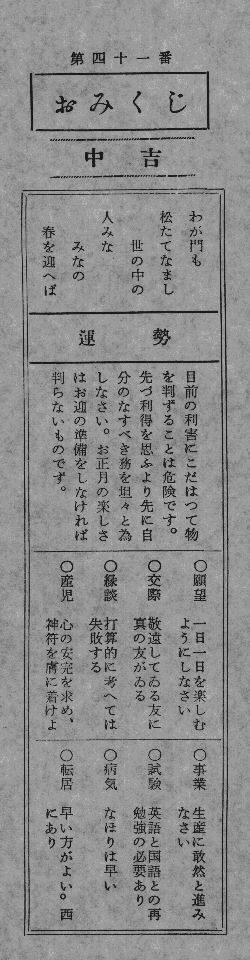 第四十一番
おみくじ
中吉
わが門も
松たてなまし
世の中の
人みな
みなの
春を迎へば
運勢
目前の利害にこだはつて物
を判ずることは危険です。
先づ利得を思ふより先に自
分のなすべき務を坦々と為
しなさい。お正月の楽しさ
はお迎の準備をしなければ
判らないものでず。
〇願望
一日一日を楽しむ
ようにしなさい
〇交際
敬遠してゐる友に
真の友がゐる
〇縁談
打算的に考へては
失敗する
〇産児
心の安完を求め、
神符を膚に着けよ
〇事業
生産に敢然と進み
なさい
〇試験
英語と国語との再
勉強の必要あり
〇病気
なほりは早い
〇転居
早い方がよい。西
にあり